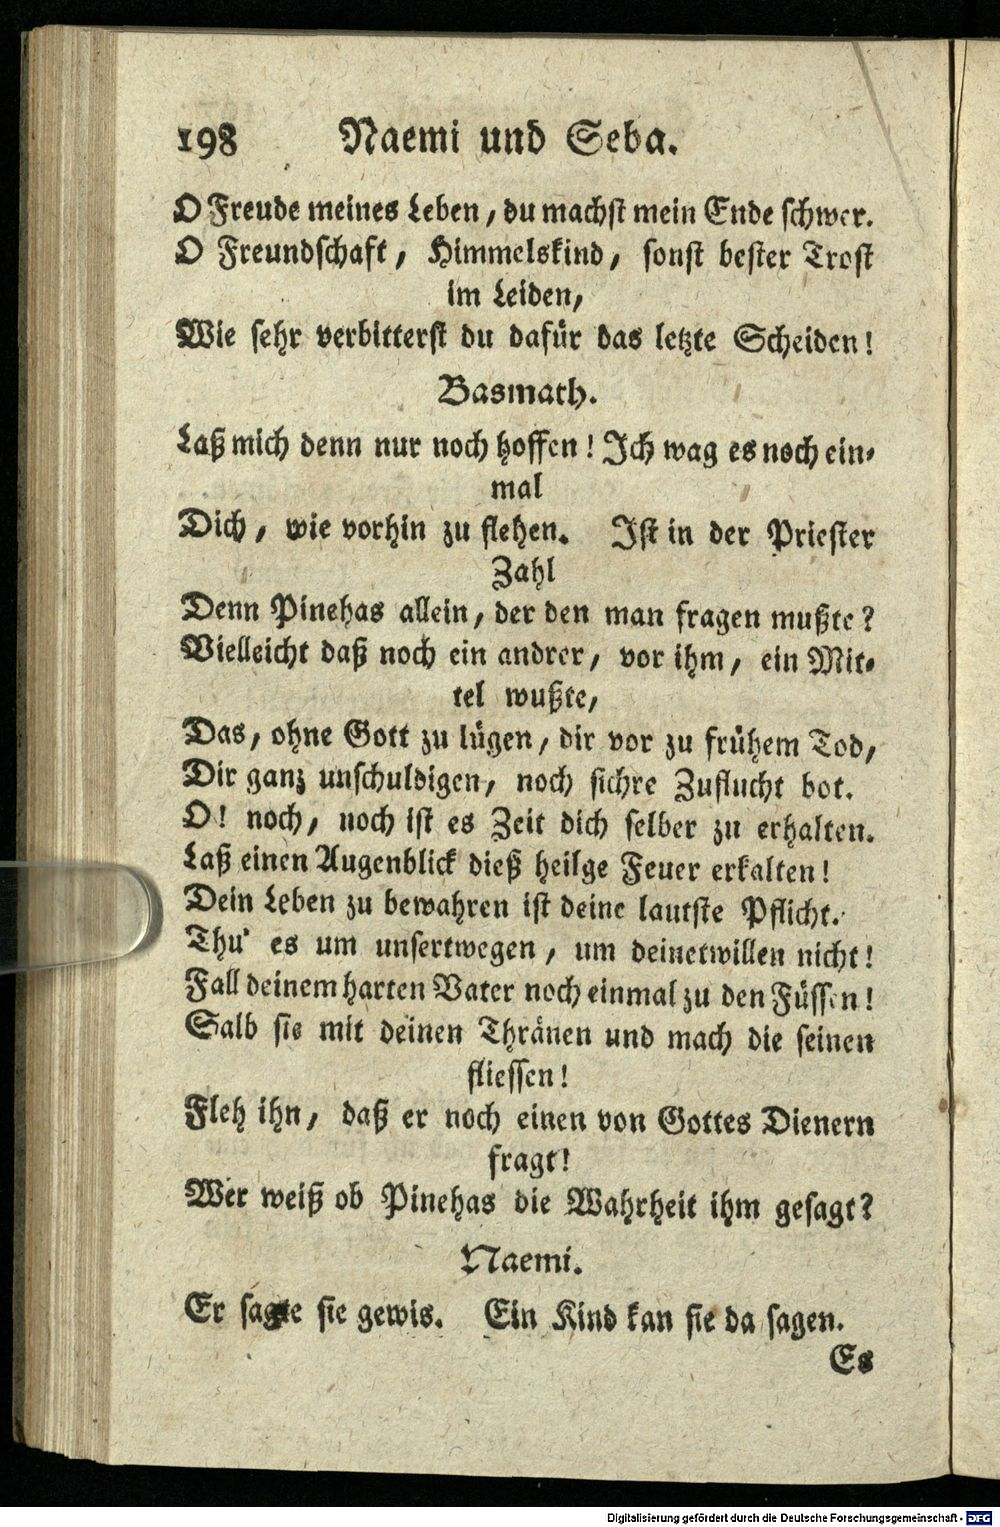 198 Naemi und Seba.
O Freude meines Leben, du machst mein Ende schwer.
O Freundschaft, Himmelskind, sonst bester Trost
im Leiden,
Wie sehr verbitterst du dafür das letzte Scheiden!
Basmath.
Laß mich denn nur noch hoffen! Ich wag es noch ein-
mal
Dich, wie vorhin zu flehen. Ist in der Priester
Zahl
Denn Pinehas allein, der den man fragen mußte?
Vielleicht daß noch ein andrer, vor ihm, ein Mit-
tel wußte,
Das, ohne Gott zu lügen, dir vor zu frühem Tod,
Dir ganz unschuldigen, noch sichre Zuflucht bot.
O! noch, noch ist es Zeit dich selber zu erhalten.
Laß einen Augenblick dieß heilge Feuer erkalten!
Dein Leben zu bewahren ist deine lautste Pflicht.
Thu' es um unsertwegen, um deinetwillen nicht!
Fall deinem harten Vater noch einmal zu den Füssen!
Salb sie mit deinen Thränen und mach die seinen
fliessen!
Fleh ihn, daß er noch einen von Gottes Dienern
fragt!
Wer weiß ob Pinehas die Wahrheit ihm gesagt?
Naemi.
Er sagte sie gewis. Ein Kind kan sie da sagen.
Es
Digitalisierung gefördert durch die Deutsche Forschungsgemeinschaft - DFG